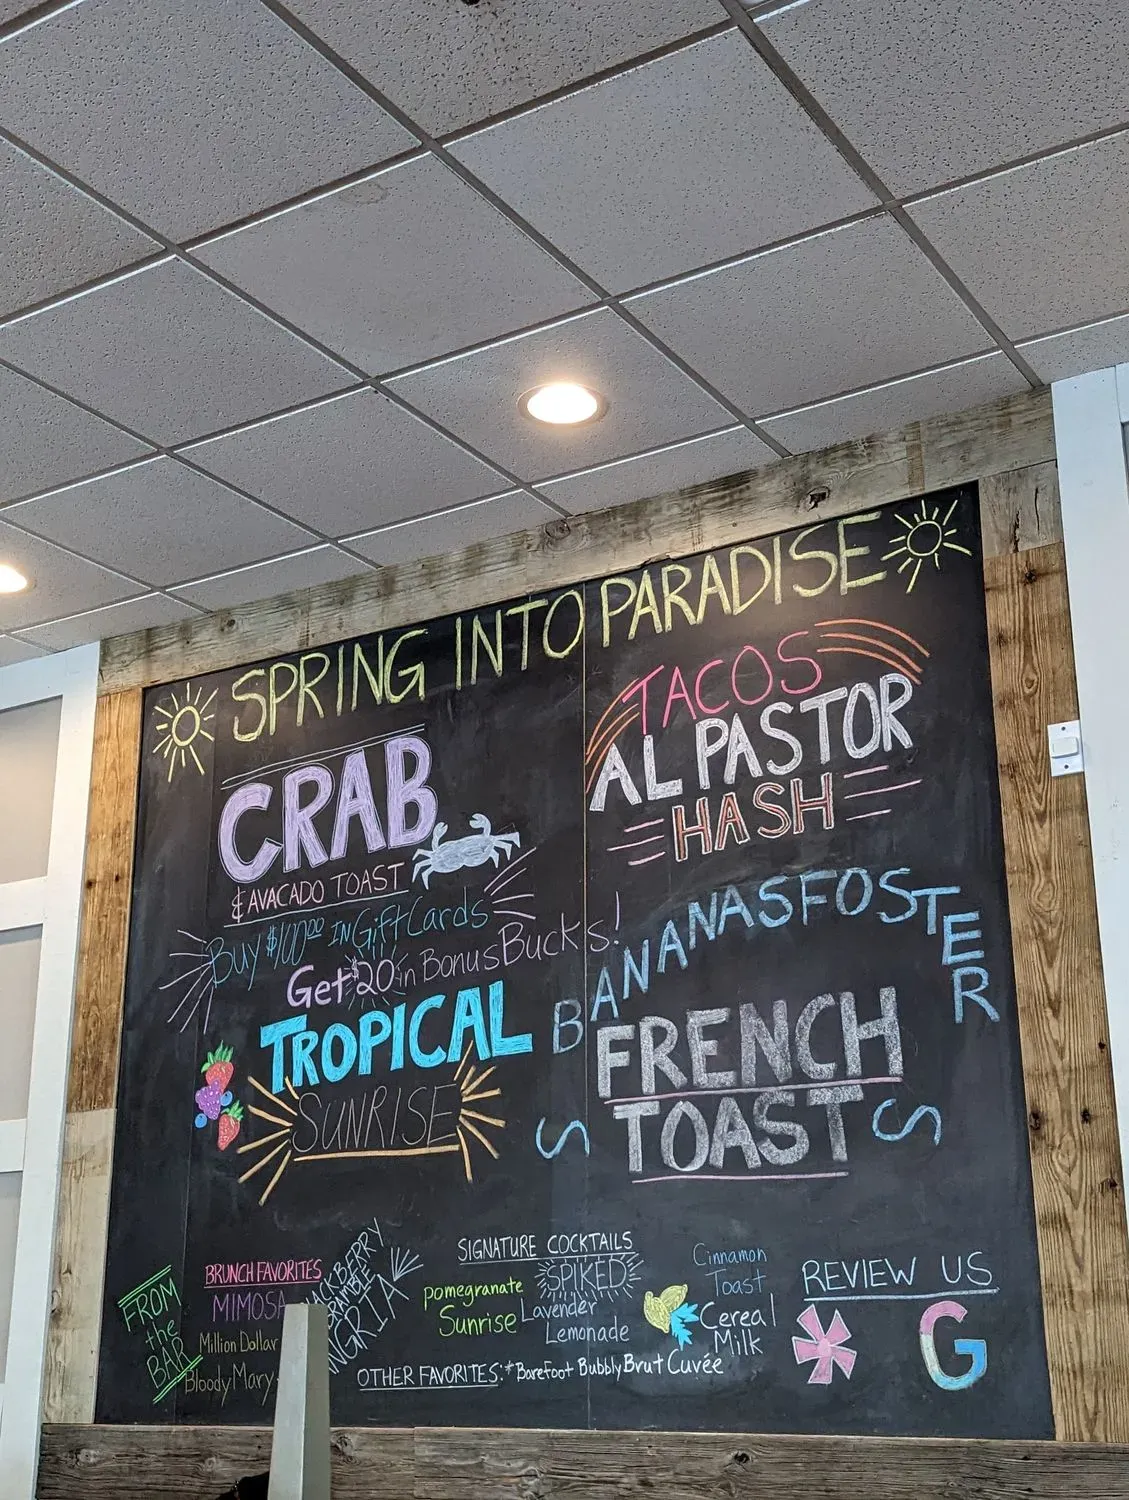 SPRING INTO PARADISE
CRAB
& AVACADO TOAST
Buy $100.00 IN Gift Cards
Get $20 in Bonus Bucks!
TROPICAL
SUNRISE
TACOS
AL PASTOR
HASH
BANANAS FOSTER
FRENCH
TOAST
FROM
the
BAR
BRUNCH FAVORITES
MIMOSA
Million Dollar
Bloody Mary
BERRY
SIGNATURE COCKTAILS
pomegranate
Sunrise
SPIKED
Lavender
Lemonade
Cinnamon
Toast
Cereal
Milk
OTHER FAVORITES:* Barefoot Bubbly Brut Cuvée
REVIEW US
G